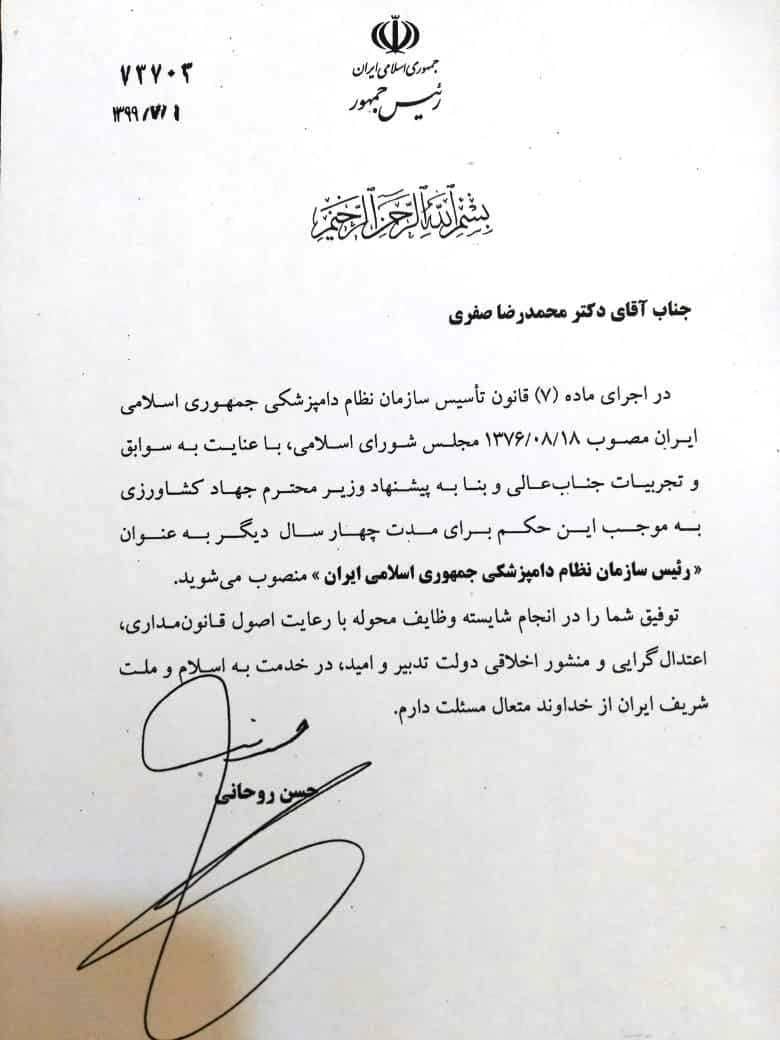 جمهوری اسلامی ایران
رئیس جمهور
۷۳۷۰۳
۱۳۹۹/۷/۱
بسم الله الرحمن الرحیم
جناب آقای دکتر محمدرضا صفری
در اجرای ماده (۷) قانون تأسیس سازمان نظام دامپزشکی جمهوری اسلامی
ایران مصوب ۱۳۷۶/۰۸/۱۸ مجلس شورای اسلامی، با عنایت به سوابق
و تجربیات جناب‌عالی و بنا به پیشنهاد وزیر محترم جهاد کشاورزی
به موجب این حکم برای مدت چهار سال دیگر به عنوان
« رئیس سازمان نظام دامپزشکی جمهوری اسلامی ایران » منصوب می‌شوید.
توفیق شما را در انجام شایسته وظایف محوله با رعایت اصول قانون‌مداری،
اعتدال‌گرایی و منشور اخلاقی دولت تدبیر و امید، در خدمت به اسلام و ملت
شریف ایران از خداوند متعال مسئلت دارم.
حسن روحانی